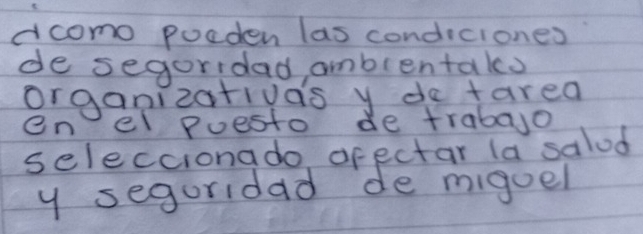 ¿como pueden las condiciones
de seguridad, ambientales
organizativas y de tarea
en el puesto de trabajo
seleccionado afectar la salud
y seguridad de miguel